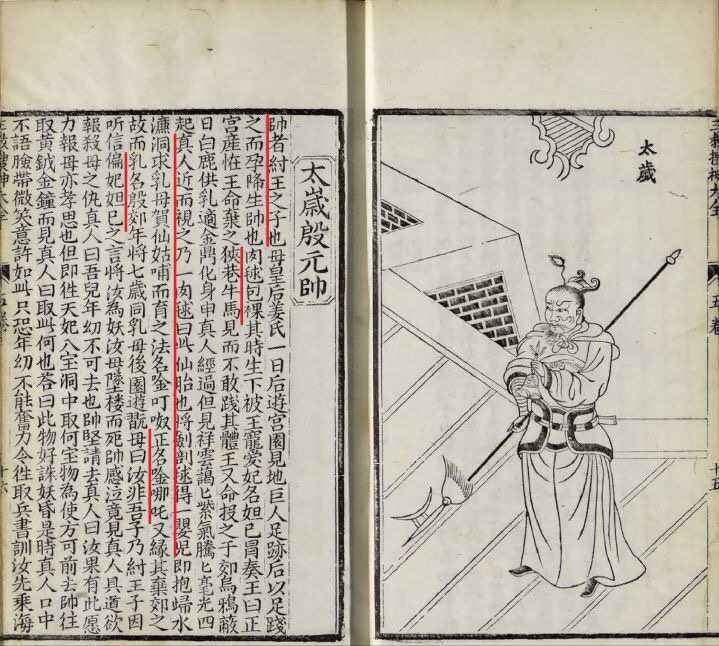 太歲
太歲殷元帥
帥者紂王之子也母皇后姜氏一日后遊宮園見地巨人足跡后以足踐
之而孕降生帥也肉毬包裸其時生下被王寵愛妃名妲己冒奏王曰正
宮產怪王命棄之狹巷牛馬見而不敢踐其體王又命投之于郊烏鴉蔽
日白鹿供乳適金鼎化身申真人經過但見祥雲靄匕紫氣騰匕毫光四
起真人近而視之乃一肉毬曰此仙胎也將劍剖毬得一嬰兒即抱歸水
濂洞求乳母賀仙姑哺而育之法名唫叮呶正名唫哪吒又緣其棄郊之
故而乳名殷郊年將七歲同乳母後園遊翫母曰汝非吾子乃紂王子因
听信偏妃妲己之言將汝為妖汝母墜樓而死帥感泣竟見真人具道欲
報殺母之仇真人曰吾兒年幼不可去也帥堅請去真人曰汝果有此愿
力報母亦孝思也但即徃天妃八宝洞中取何宝物為使方可前去帥徃
取黃鉞金鐘而見真人曰取此何也答曰此物好誅妖昏是時真人口中
不語臉帶微笑意許如此只恐年幼不能奮力令徃取兵書訓汝先乘海